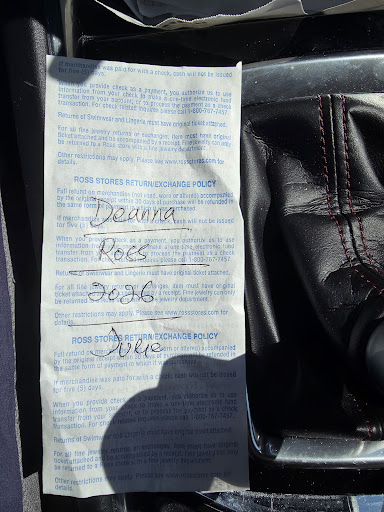 If merchandise was paid for with a check, cash will not be issued
for five (5) days.
When you provide check as a payment, you authorize us to use
information from your check to make a one-time electronic fund
transfer from your account, or to process the payment as a check
transaction. For check related inquiries please call 1-800-707-7457.
Returns of Swimwear and Lingerie must have original ticket attached.
For all fine jewelry returns or exchanges, item must have original
ticket attached and be accompanied by a receipt. Fine jewelry can only
be returned to a Ross store with a fine jewelry department.
Other restrictions may apply. Please see www.rossstores.com for
details.
ROSS STORES RETURN/EXCHANGE POLICY
Full refund on merchandise (not used, worn or altered) accompanied
by the original receipt within 30 days of purchase will be refunded in
the same form
Deanna
If merchandise was paid for with a check, cash will not be issued
for five (5)
When you provide check as a payment, you authorize us to use
information from your
Ross
transfer from your
transaction. For
Returns of Swimwear and Lingerie must have original ticket attached.
For all fine
2026
item must have original
ticket attached
a receipt. Fine jewelry can only
be returned
jewelry department.
Other restrictions may apply. Please see www.rossstores.com for
details.
ROSS STORES RETURN/EXCHANGE POLICY
Full refund
by the original receipt
refunded in
the same form of payment in which it
If merchandise was paid for with a check, cash will not be issued
for five (5) days.
When you provide check as a payment, you authorize us to use
information from your check to make a one-time electronic fund
transfer from your account, or to process the payment as a check
Returns of Swimwear and Lingerie must have original ticket attached.
For all fine jewelry returns or exchanges, item must have original
ticket attached and be accompanied by a receipt. Fine jewelry can only
be returned to a Ross store with a fine jewelry department.
Other restrictions may apply. Please see www.rossstores.com for
details.